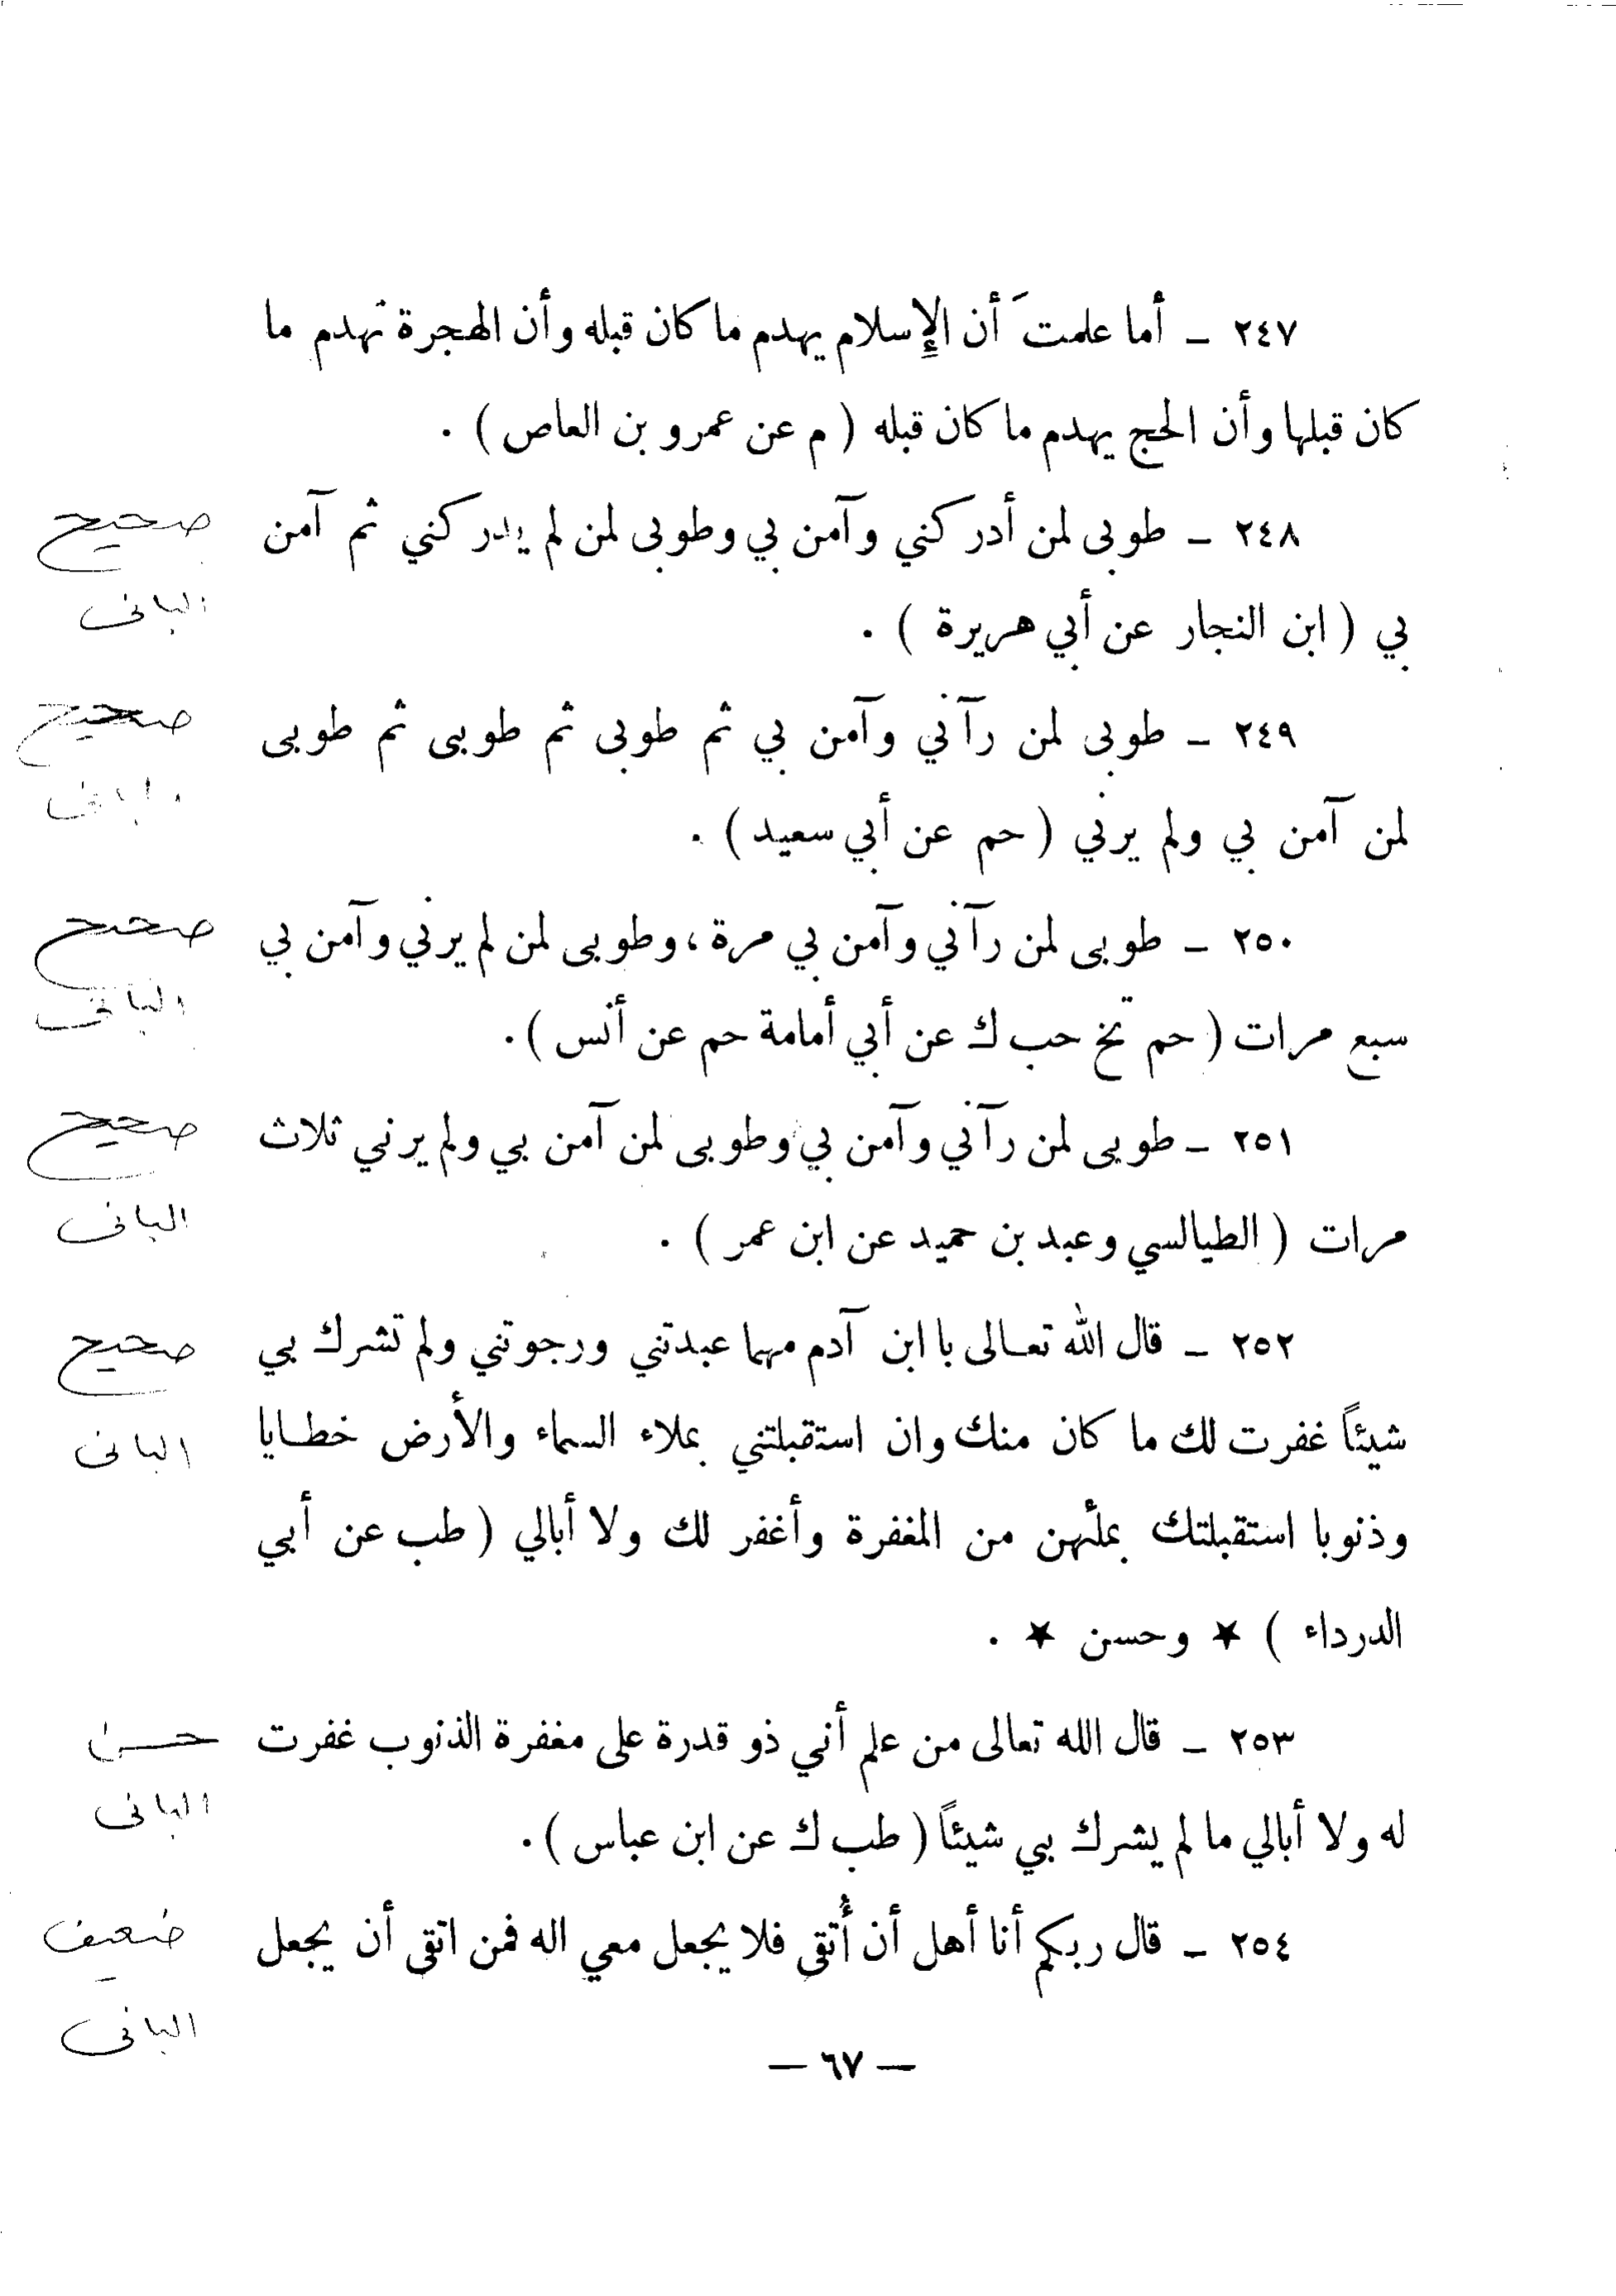 ٢٤٧ ـ أما علمتَ أن الإسلام يهدم ما كان قبله وأن الهجرة تهدم ما
كان قبلها وأن الحج يهدم ما كان قبله ( م عن عمرو بن العاص ) .
٢٤٨ ـ طوبى لمن أدركني وآمن بي وطوبى لمن لم يدركني ثم آمن
صحيح
الباني
بي ( ابن النجار عن أبي هريرة ) .
٢٤٩ ـ طوبى لمن رآني وآمن بي ثم طوبى ثم طوبى ثم طوبى
صحيح
لمن آمن بي ولم يرني ( حم عن أبي سعيد ) .
٢٥٠ ـ طوبى لمن رآني وآمن بي مرة ، وطوبى لمن لم يرني وآمن بي
صحيح
الباني
سبع مرات ( حم تخ حب ك عن أبي أمامة حم عن أنس ) .
٢٥١ ـ طوبى لمن رآني وآمن بي وطوبى لمن آمن بي ولم يرني ثلاث
صحيح
الباني
مرات ( الطيالسي وعبد بن حميد عن ابن عمر ) .
٢٥٢ ـ قال الله تعالى با ابن آدم مهما عبدتني ورجوتني ولم تشرك بي
صحيح
شيئاً غفرت لك ما كان منك وان استقبلتني بملاء السماء والأرض خطايا
الباني
وذنوبا استقبلتك بملئهن من المغفرة وأغفر لك ولا أبالي ( طب عن أبي
الدرداء ) ★ وحسن ★ .
٢٥٣ ـ قال الله تعالى من علم أني ذو قدرة على مغفرة الذنوب غفرت
حسن
الباني
له ولا أبالي ما لم يشرك بي شيئاً ( طب ك عن ابن عباس ) .
٢٥٤ ـ قال ربكم أنا أهل أن أُتقى فلا يجعل معي اله فمن اتقى أن يجعل
ضعيف
الباني
— ٦٧ —